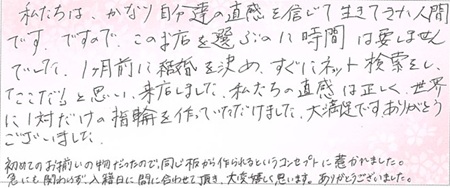 私たちは、かなり自分達の直感を信じて生きてきた人間
です。ですので、このお店を選ぶのに時間は要しません
でした。1ヶ月前に結婚を決め、すぐにネット検索をし、
"ここだ!"と思い、来店しました。私たちの直感は正しく、世界
に1対だけの指輪を作っていただけました。大満足です。ありがとう
ございました。
初めてのお揃いの物だったので、同じ板から作られるというコンセプトに惹かれました。
急にも関わらず、入籍日に間に合わせて頂き、大変嬉しく思います。ありがとうございました。